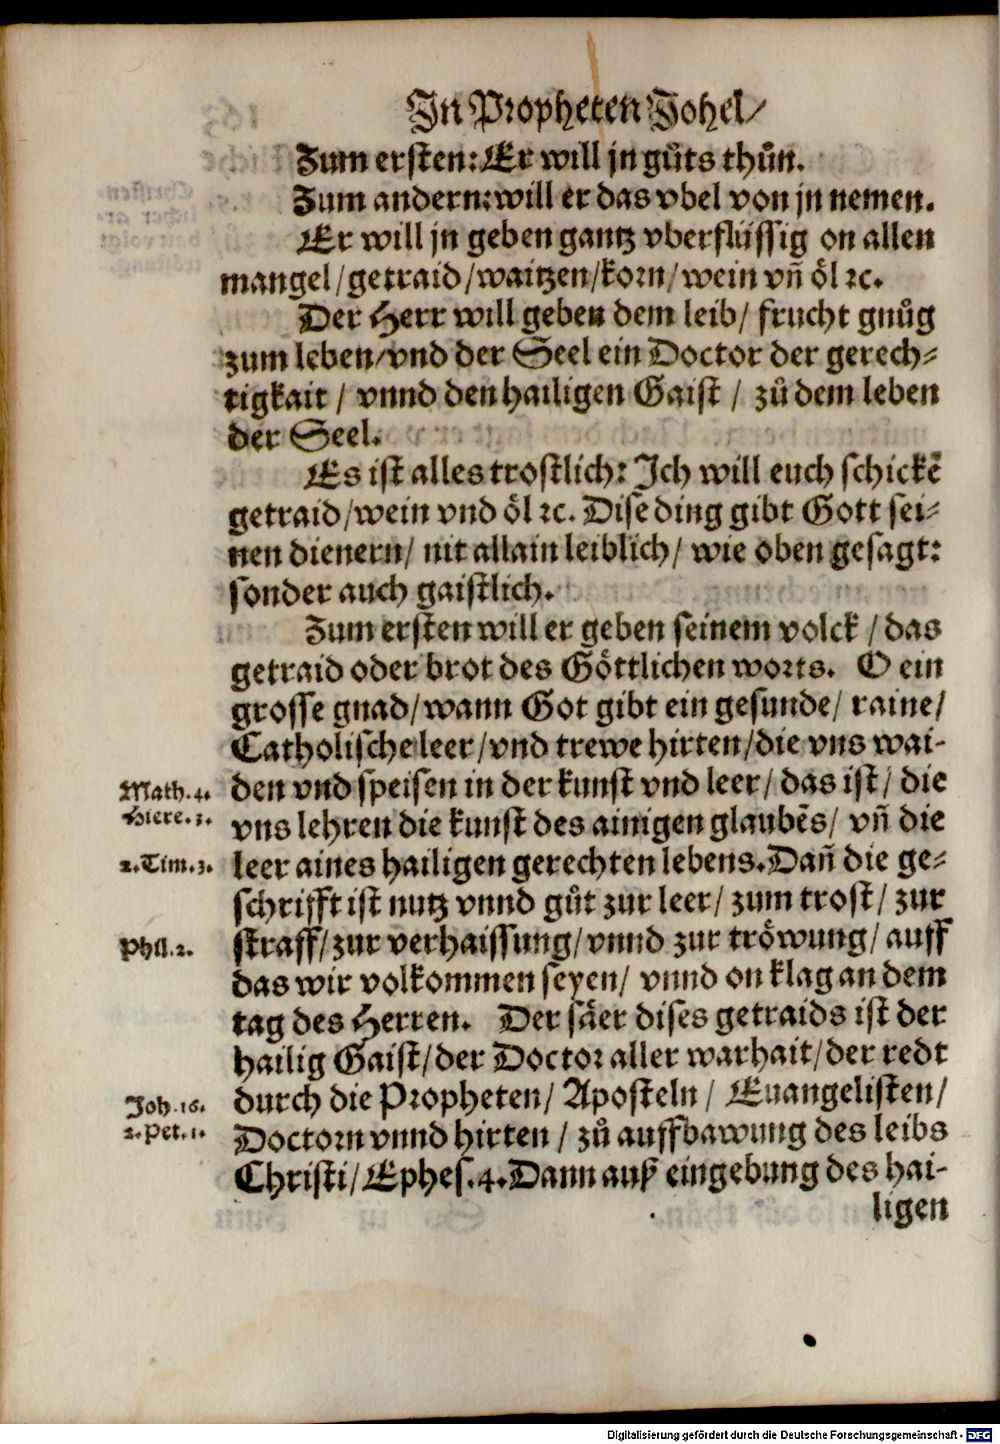 In Propheten Johel/
Zum ersten: Er will jn gůts thůn.
Zum andern: will er das vbel von jn nemen.
Er will jn geben gantz vberflüssig on allen
mangel/getraid/waitzen/korn/wein vñ öl ꝛc.
Der Herr will geben dem leib/ frucht gnůg
zum leben/vnd der Seel ein Doctor der gerech⸗
tigkait / vnnd den hailigen Gaist / zů dem leben
der Seel.
Es ist alles trostlich: Ich will euch schickẽ
getraid/wein vnd öl ꝛc. Dise ding gibt Gott sei⸗
nen dienern/ nit allain leiblich/ wie oben gesagt:
sonder auch gaistlich.
Zum ersten will er geben seinem volck / das
getraid oder brot des Göttlichen worts. O ein
grosse gnad/wann Got gibt ein gesunde/ raine/
Catholische leer/vnd trewe hirten/die vns wai-
Math.4. den vnd speisen in der kunst vnd leer/ das ist/ die
Hiere.3. vns lehren die kunst des ainigen glaubẽs/ vñ die
2.Tim.3. leer aines hailigen gerechten lebens. Dañ die ge⸗
schrifft ist nutz vnnd gůt zur leer/ zum trost/ zur
Phil.2. straff/zur verhaissung/vnnd zur tröwung/ auff
das wir volkommen seyen/ vnnd on klag an dem
tag des Herren. Der säer dises getraids ist der
hailig Gaist/der Doctor aller warhait/der redt
Joh.16. durch die Propheten/ Aposteln / Euangelisten/
2.Pet.1. Doctorn vnnd hirten / zů auffbawung des leibs
Christi/Ephes.4. Dann auß eingebung des hai-
ligen
Digitalisierung gefördert durch die Deutsche Forschungsgemeinschaft - DFG